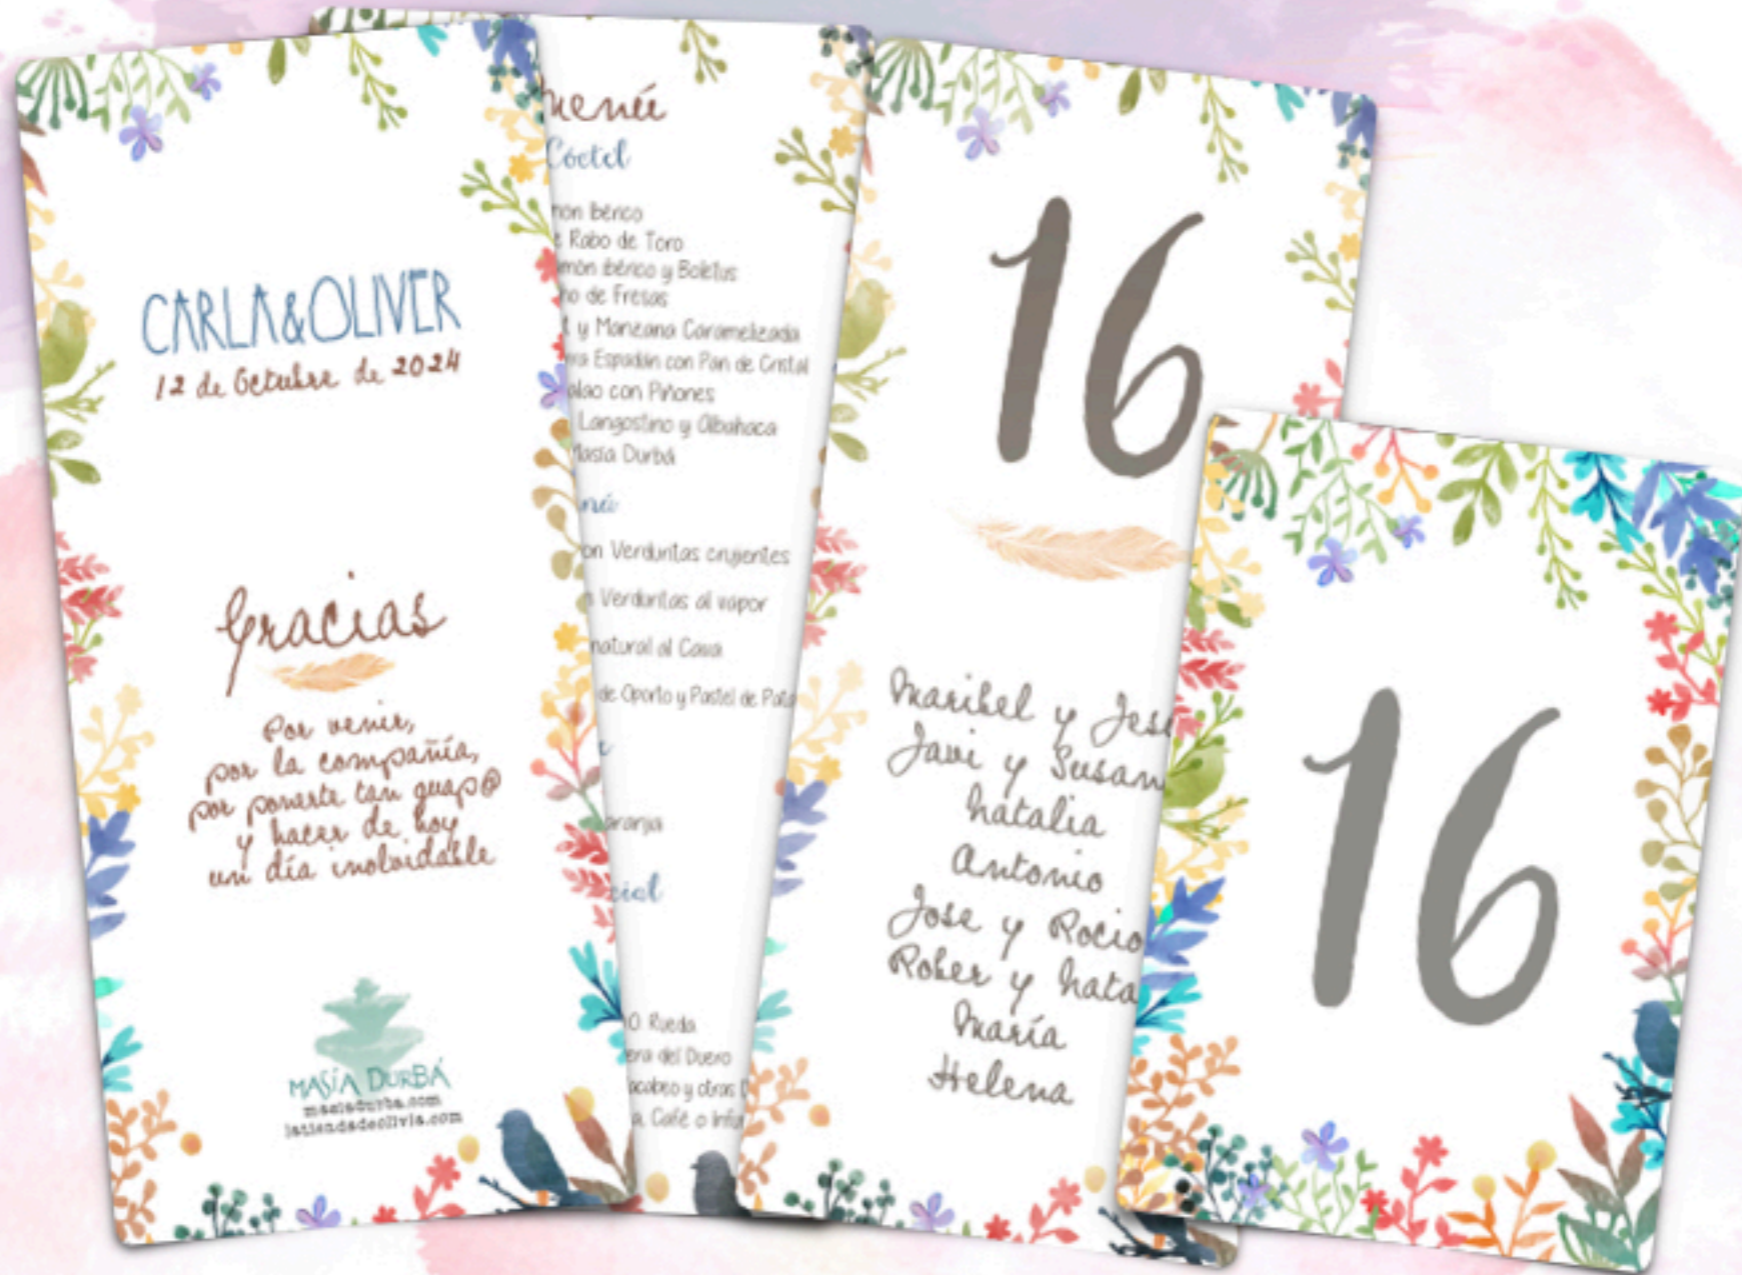 CARLA&OLIVER
12 de Octubre de 2024
Gracias
Por venir,
por la compañía,
por ponerte tan guap@
y hacer de hoy
un día inolvidable
MASÍA DURBÁ
masiadurba.com
latiendadeolivia.com
menú
Cóctel
món Ibérico
e Rabo de Toro
amón ibérico y Boletus
ho de Fresas
t y Manzana Caramelizada
Espadán con Pan de Cristal
alao con Piñones
Langostino y Albahaca
Masía Durbá
nú
on Verduritas crujientes
Verduritas al vapor
natural al Cava
de Oporto y Pastel de Pata
aranja
cial
O. Rueda
era del Duero
acabeo y otras
a, Café o Infu
16
Maribel y Jesú
Javi y Susan
Natalia
Antonio
Jose y Rocio
Rober y Nata
María
Helena
16